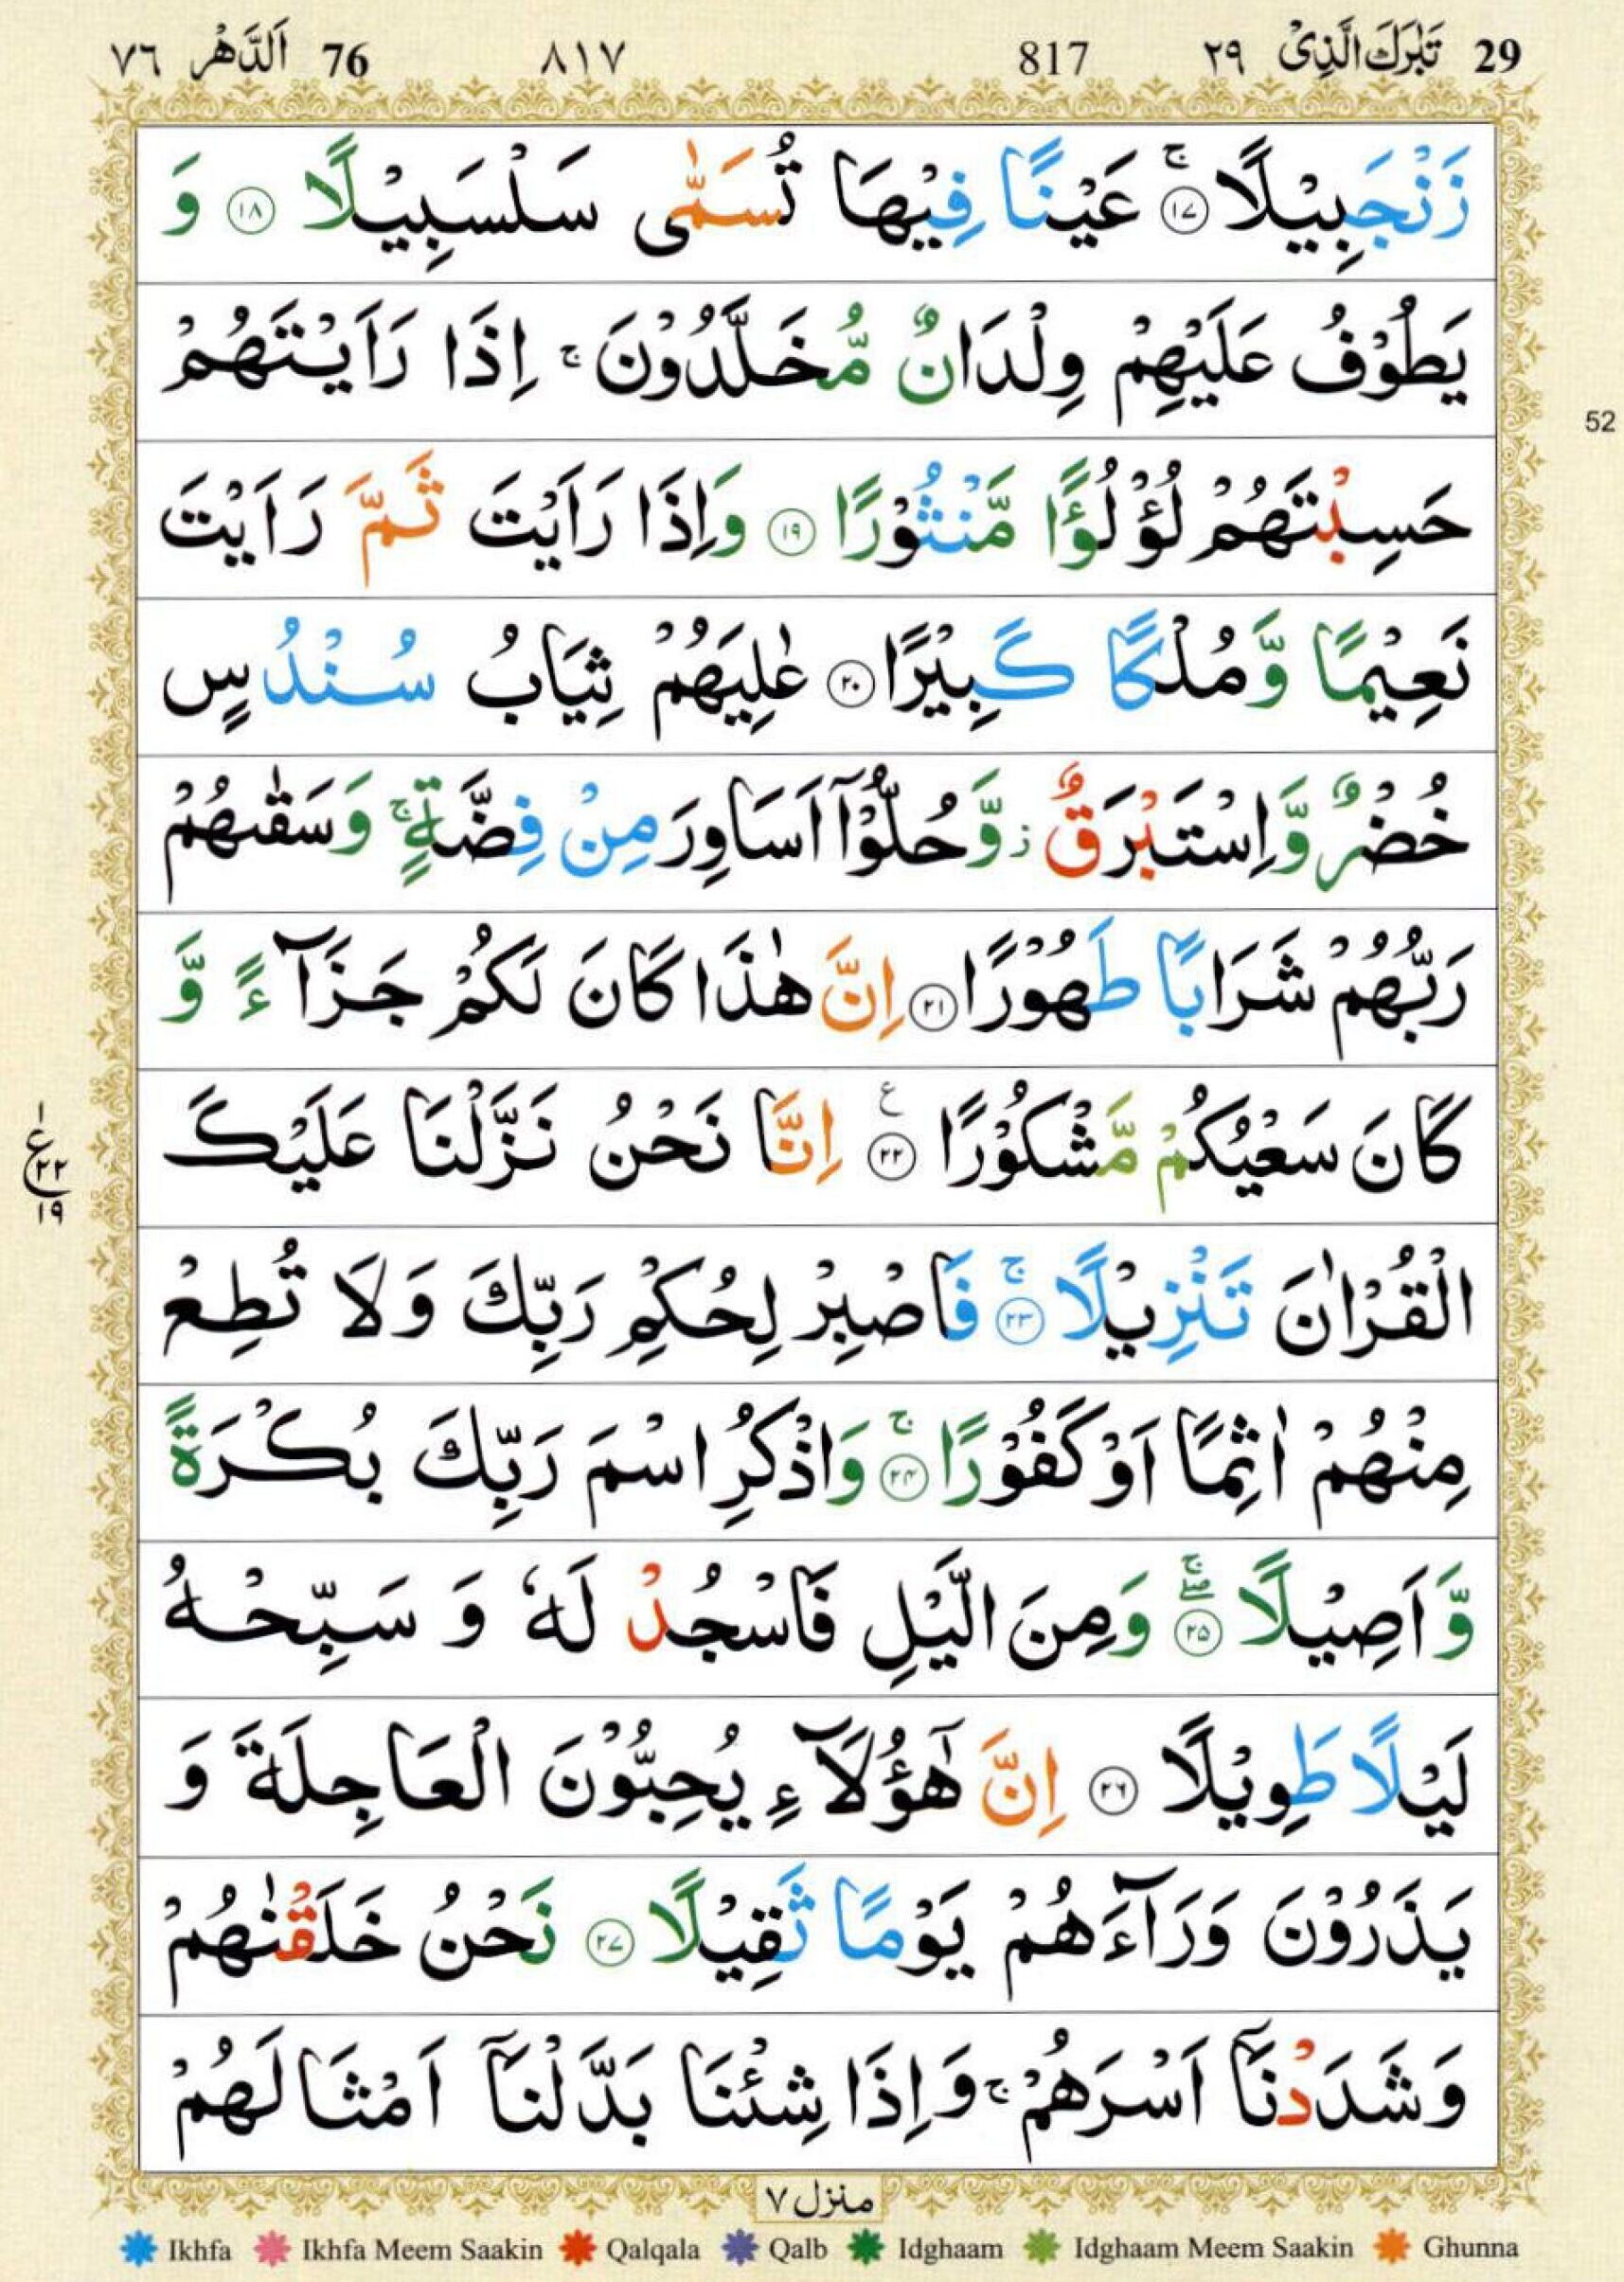 29 تَبٰرَكَ الَّذِیْ ٢٩ 817 ٨١٧ 76 اَلدَّهْر ٧٦
زَنْجَبِیْلًا ۚ ١٧ عَیْنًا فِیْهَا تُسَمّٰی سَلْسَبِیْلًا ١٨ وَ
یَطُوْفُ عَلَیْهِمْ وِلْدَانٌ مُّخَلَّدُوْنَ ۚ اِذَا رَاَیْتَهُمْ
حَسِبْتَهُمْ لُؤْلُؤًا مَّنْثُوْرًا ١٩ وَاِذَا رَاَیْتَ ثَمَّ رَاَیْتَ
نَعِیْمًا وَّمُلْكًا كَبِیْرًا ٢٠ عٰلِیَهُمْ ثِیَابُ سُنْدُسٍ
خُضْرٌ وَّاِسْتَبْرَقٌ ز وَّحُلُّوْۤا اَسَاوِرَ مِنْ فِضَّةٍ ۚ وَسَقٰىهُمْ
رَبُّهُمْ شَرَابًا طَهُوْرًا ٢١ اِنَّ هٰذَا كَانَ لَكُمْ جَزَآءً وَّ
كَانَ سَعْیُكُمْ مَّشْكُوْرًا ع ٢٢ اِنَّا نَحْنُ نَزَّلْنَا عَلَیْكَ
الْقُرْاٰنَ تَنْزِیْلًا ۚ ٢٣ فَاصْبِرْ لِحُكْمِ رَبِّكَ وَلَا تُطِعْ
مِنْهُمْ اٰثِمًا اَوْ كَفُوْرًا ۚ ٢٤ وَاذْكُرِ اسْمَ رَبِّكَ بُكْرَةً
وَّاَصِیْلًا ۖۚ ٢٥ وَمِنَ الَّیْلِ فَاسْجُدْ لَهٗ وَ سَبِّحْهُ
لَیْلًا طَوِیْلًا ٢٦ اِنَّ هٰۤؤُلَآءِ یُحِبُّوْنَ الْعَاجِلَةَ وَ
یَذَرُوْنَ وَرَآءَهُمْ یَوْمًا ثَقِیْلًا ٢٧ نَحْنُ خَلَقْنٰهُمْ
وَشَدَدْنَاۤ اَسْرَهُمْ ۚ وَاِذَا شِئْنَا بَدَّلْنَاۤ اَمْثَالَهُمْ
52
١
ع
٢٢
١٩
منزل ٧
Ikhfa Ikhfa Meem Saakin Qalqala Qalb Idghaam Idghaam Meem Saakin Ghunna